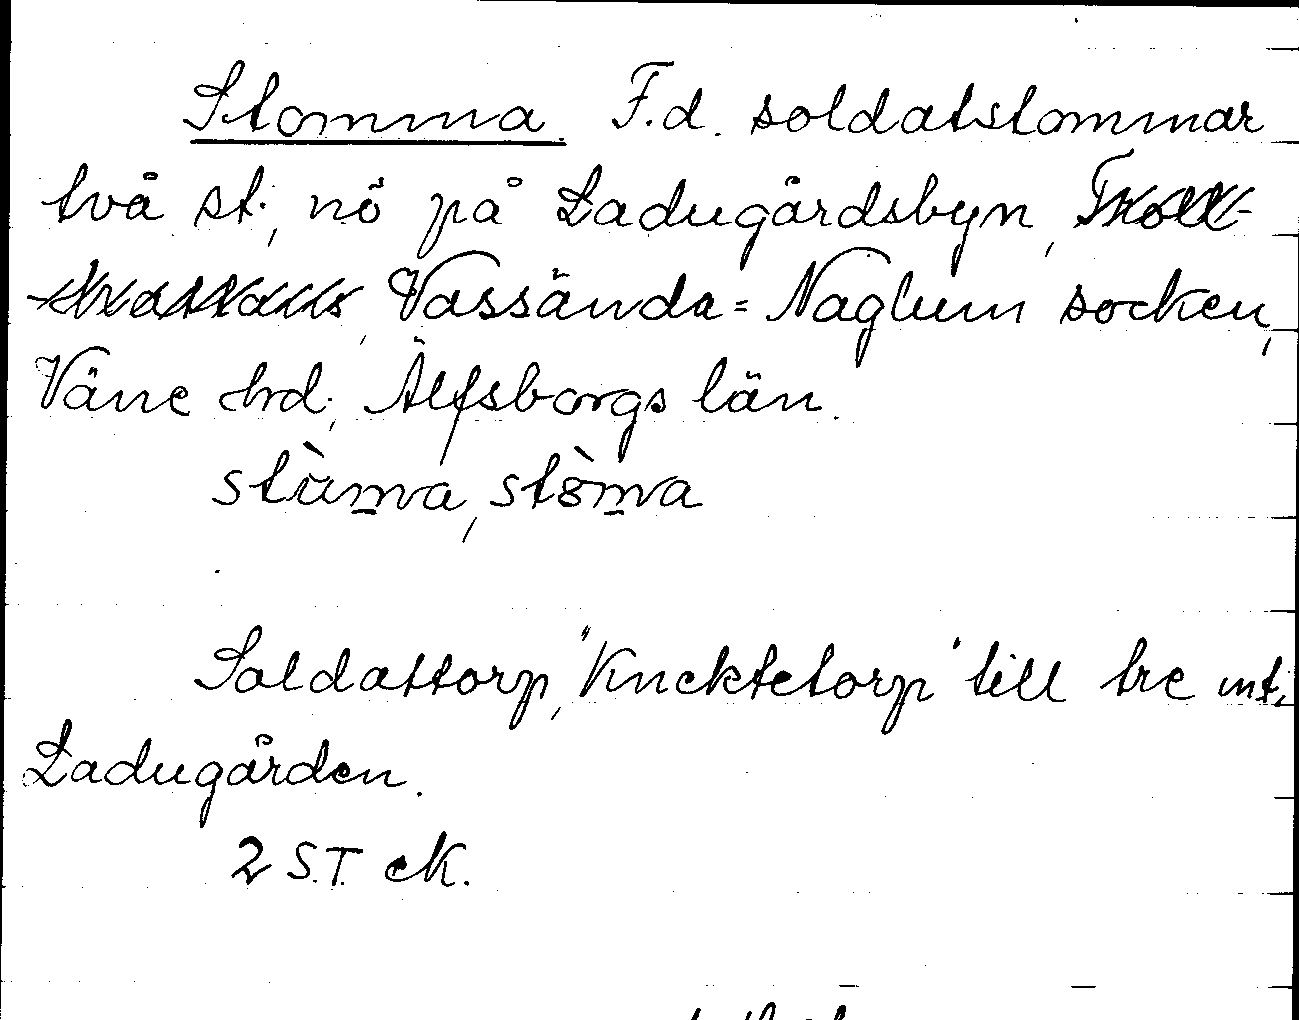 Stomma. F.d. soldatstommar
två st., nö på Ladugårdsbyn,
Vassända=Naglum socken,
Väne hrd., Älfsborgs län.
Soldattorp, "Knektetorp" till tre mt.
Ladugården.
2 S.T. eK.